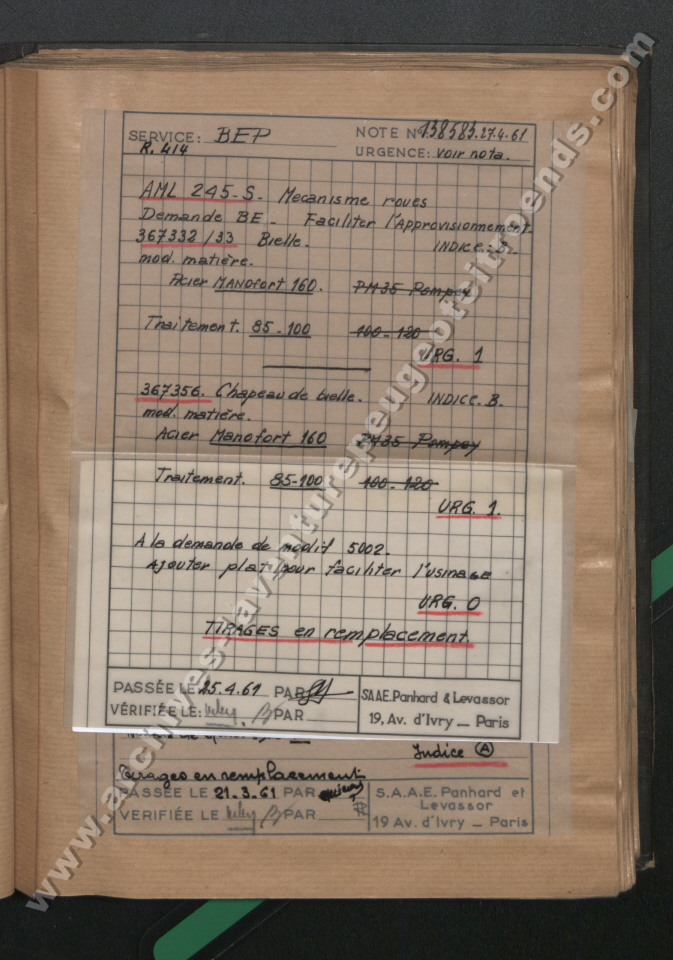 SERVICE: BEP NOTE N° 138583.27.4.61
R. 414 URGENCE: voir nota.
AML 245-S. Mecanisme roues
Demande BE - Faciliter l'Approvisionnement.
367332/33 Bielle. INDICE: B.
mod. matière.
Acier MANOfort 160. PM35 Pompey
Traitement. 85-100 100-120
URG. 1
367356. Chapeau de bielle. INDICE. B.
mod. matière.
Acier Manofort 160 PM35 Pompey
Traitement. 85-100 100-120
URG. 1.
A la demande de modif 5002.
Ajouter plat pour faciliter l'usinage
URG. 0
TIRAGES en remplacement.
PASSÉE LE 25.4.61 PAR SAAE. Panhard & Levassor
VÉRIFIÉE LE: PAR 19, Av. d'Ivry _ Paris
Indice A
Tirages en remplacement
PASSÉE LE 21.3.61 PAR S.A.A.E. Panhard et
Levassor
VERIFIÉE LE PAR 19 Av. d'Ivry _ Paris
www.archives-laventurepeugeotcitroends.com